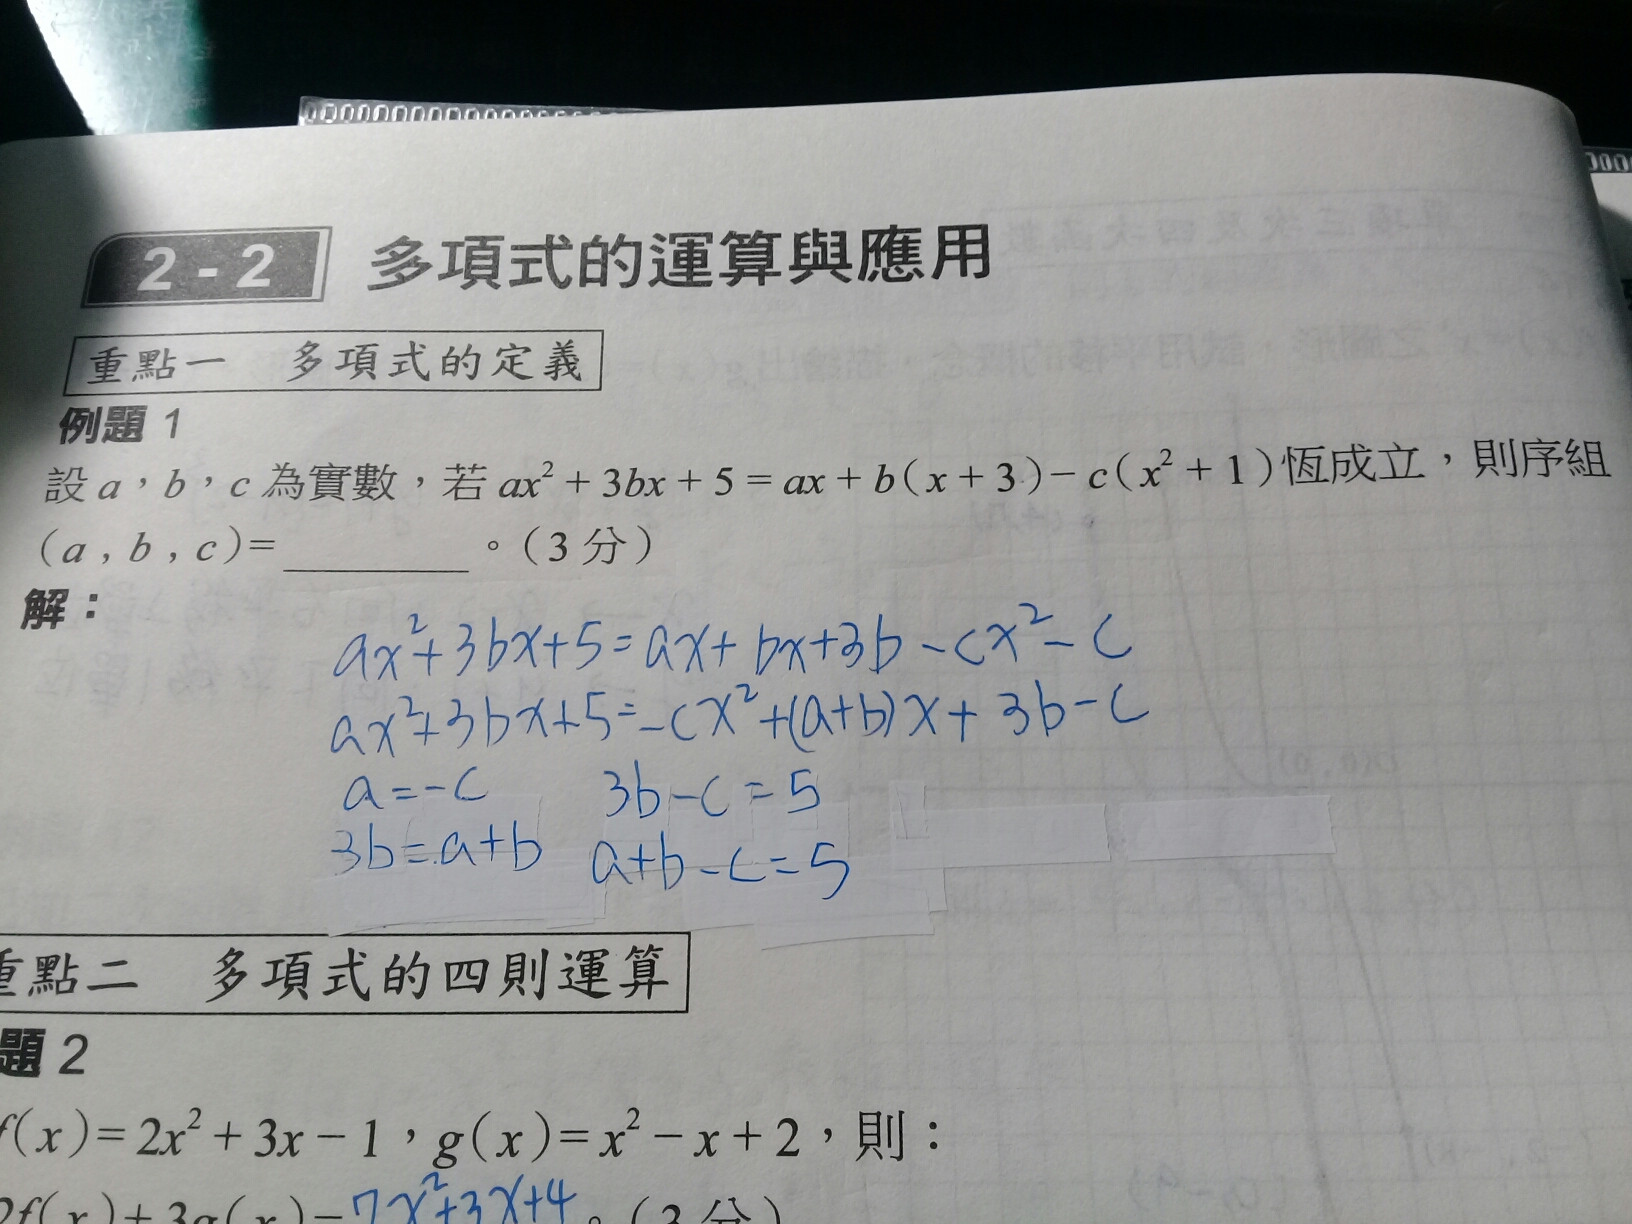 2-2 多項式的運算與應用
重點一 多項式的定義
例題 1
設 a，b，c 為實數，若 ax² + 3bx + 5 = ax + b(x + 3) − c(x² + 1) 恆成立，則序組
(a , b , c) = ________ 。(3 分)
解：
ax²+3bx+5=ax+bx+3b-cx²-c
ax²+3bx+5=-cx²+(a+b)x+3b-c
a=-c 3b-c=5
3b=a+b a+b-c=5
重點二 多項式的四則運算
題 2
f(x) = 2x² + 3x − 1，g(x) = x² − x + 2，則：
2f(x) + 3g(x) = 7x²+3x+4 。(3 分)